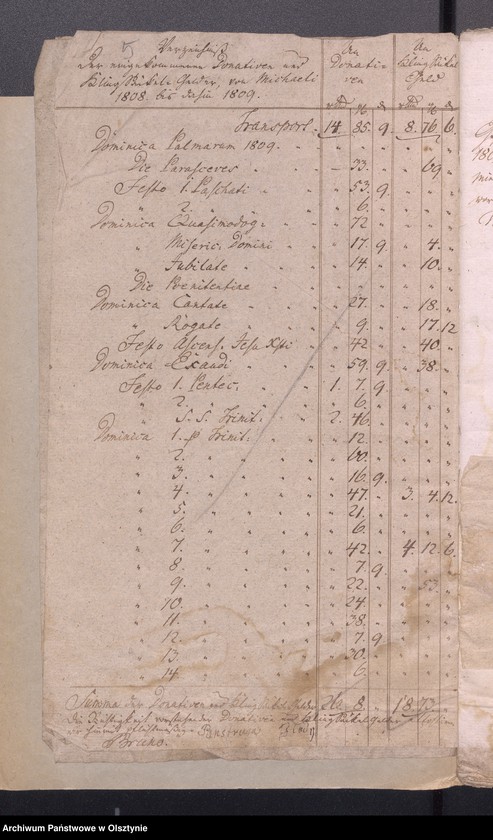 Verzeichniß
der eingekommenen Donativen und
Klingbeutels Gelder, von Michaeli
1808 bis dahin 1809.
An Donativen
An Klingbeutel Geld
Transport. 14. 85. 9. 8. 76. 6.
Dominica Palmarum 1809.
Die Parasceves — 33. 69
Festo 1. Paschati 53. 9
" 2. 6.
Dominica Quasimodog. 72
" Miseric. Domini 17. 9 4.
" Jubilate 14. 10.
Die Poenitentiae
Dominica Cantate 27. 18.
" Rogate 9. 17. 12
Festo Ascens. Jesu Xsti 42 40.
Dominica Exaudi 59. 9 38.
Festo 1. Pentec. 1. 7. 9
" 2. 6.
" S. S. Trinit. 2. 46.
Dominica 1. p Trinit. 12.
" 2. 60.
" 3. 16. 9
" 4. 47. 3. 4. 12.
" 5. 21.
" 6. 6.
" 7. 42. 4. 12. 6.
" 8. 7. 9
" 9. 22. 53.
" 10. 24.
" 11. 38.
" 12. 7. 9
" 13. 30.
" 14. 6.
Summa der Donativen und Klingbeutels Gelder 8. 18.
die Richtigkeit vorstehender Donativen und Klingbeutelgelder
Archiwum Państwowe w Olsztynie